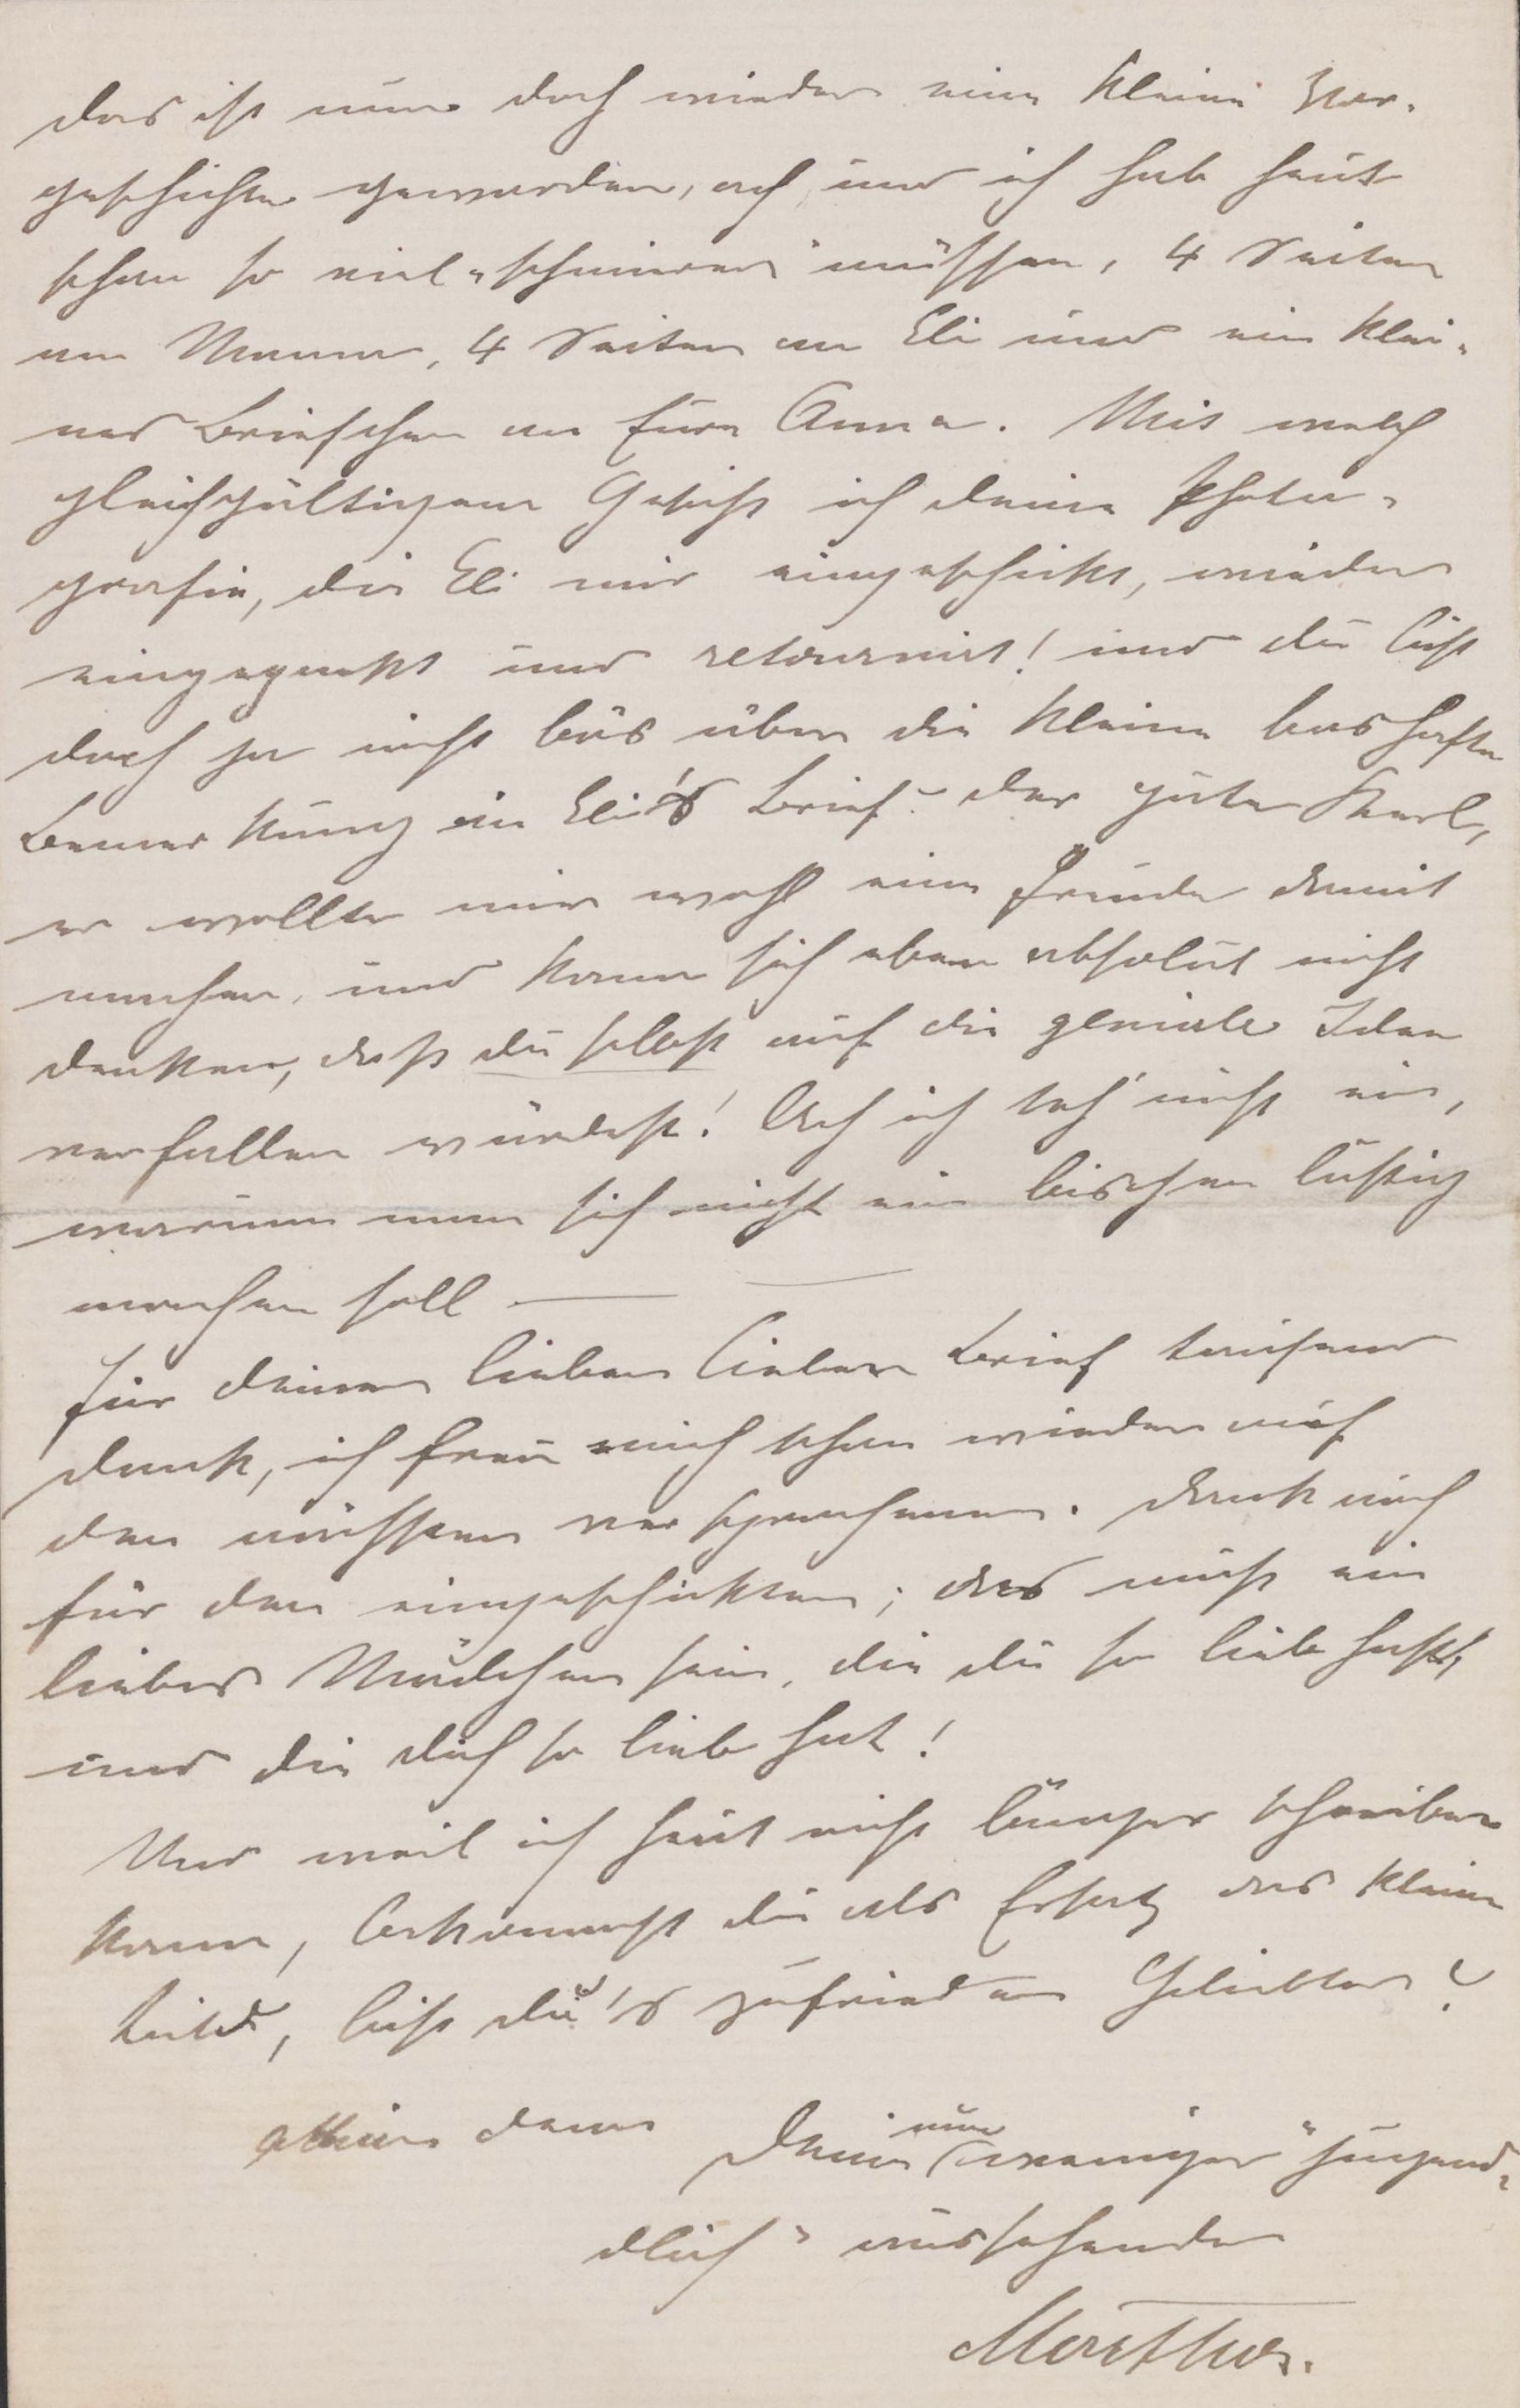 das ist nun doch wieder eine kleine Vor-
geschichte geworden, ach, und ich hab heut
schon so viel „schmieren" müssen, 4 Seiten
an Mama, 4 Seiten an Eli und ein klei-
nes Briefchen an Eure Anna. Mit welch
gleichgültigem Gesicht ich deine Photo-
grafie, die Eli mir eingeschickt, wieder
eingepackt und retournirt! und du bist
doch ja nicht bös über die kleine boshafte
Bemerkung in Eli's Brief? der gute Kerl,
er wollte mir wohl eine Freude damit
machen, und kann sich eben absolut nicht
denken, daß du selbst auf die geniale Idee
verfallen würdest! Ach ich seh' nicht ein,
warum man sich nicht ein bischen lustig
machen soll —
Für deinen lieben lieben Brief tausend
Dank, ich freu mich schon wieder auf
den nächsten versprochenen. Dank auch
für den eingeschickten; das muß ein
liebes Mädchen sein, die du so lieb hast,
und die dich so lieb hat!
Und weil ich heut nicht länger schreiben
kann, bekommst du als Ersatz das kleine
Bild, bist du's zufrieden Geliebter?
dann Deine nun weniger „jugend-
dlich" aussehende
Martha.